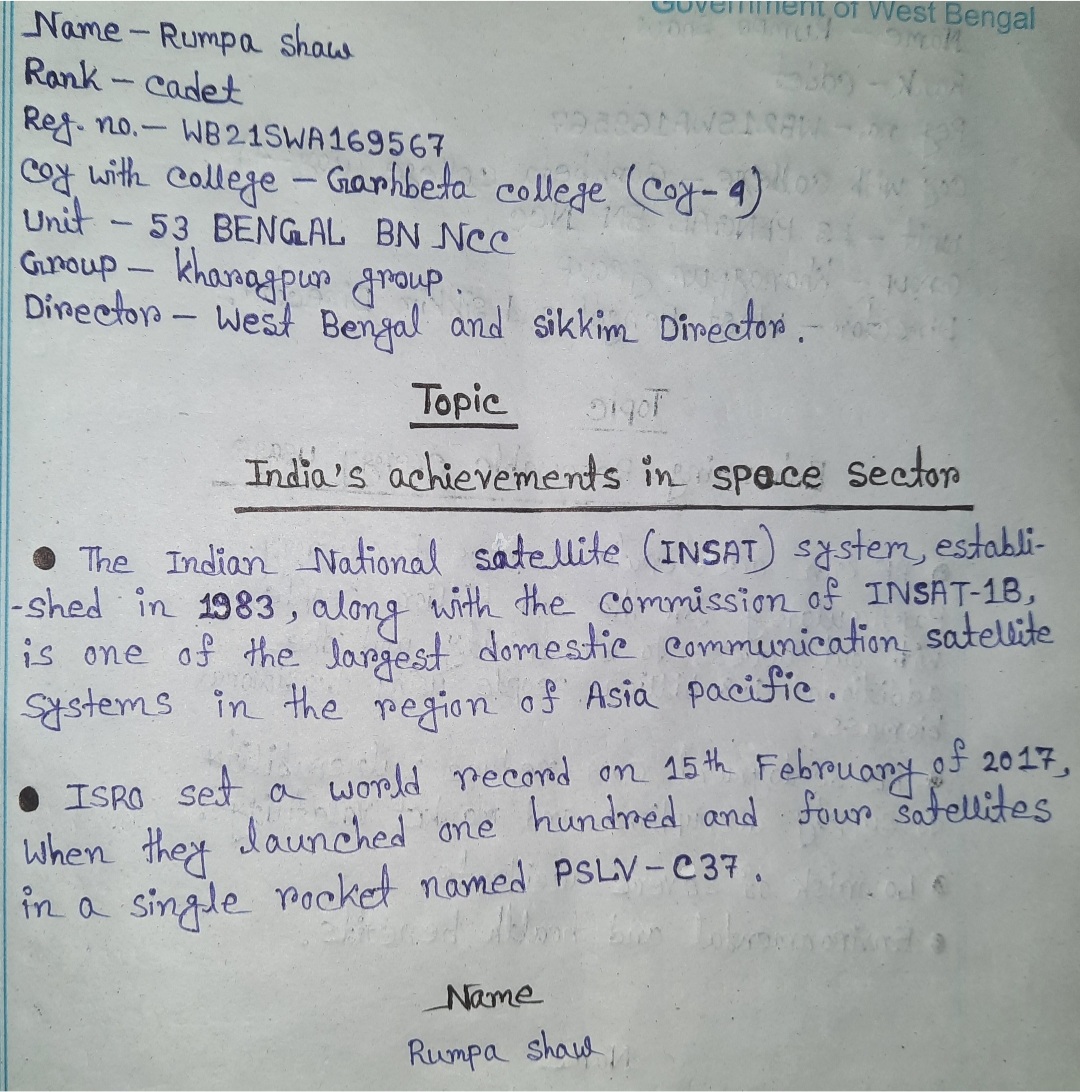 Government of West Bengal
Name - Rumpa shaw
Rank - cadet
Reg. no. - WB21SWA169567
coy with college - Garhbeta college (coy-4)
Unit - 53 BENGAL BN NCC
Group - kharagpur group.
Director - West Bengal and sikkim Director.
Topic
India's achievements in space sector
● The Indian National satellite (INSAT) system, establi-
-shed in 1983, along with the commission of INSAT-1B,
is one of the largest domestic communication satellite
systems in the region of Asia pacific.
● ISRO set a world record on 15th February of 2017,
when they launched one hundred and four satellites
in a single rocket named PSLV-C37.
Name
Rumpa shaw